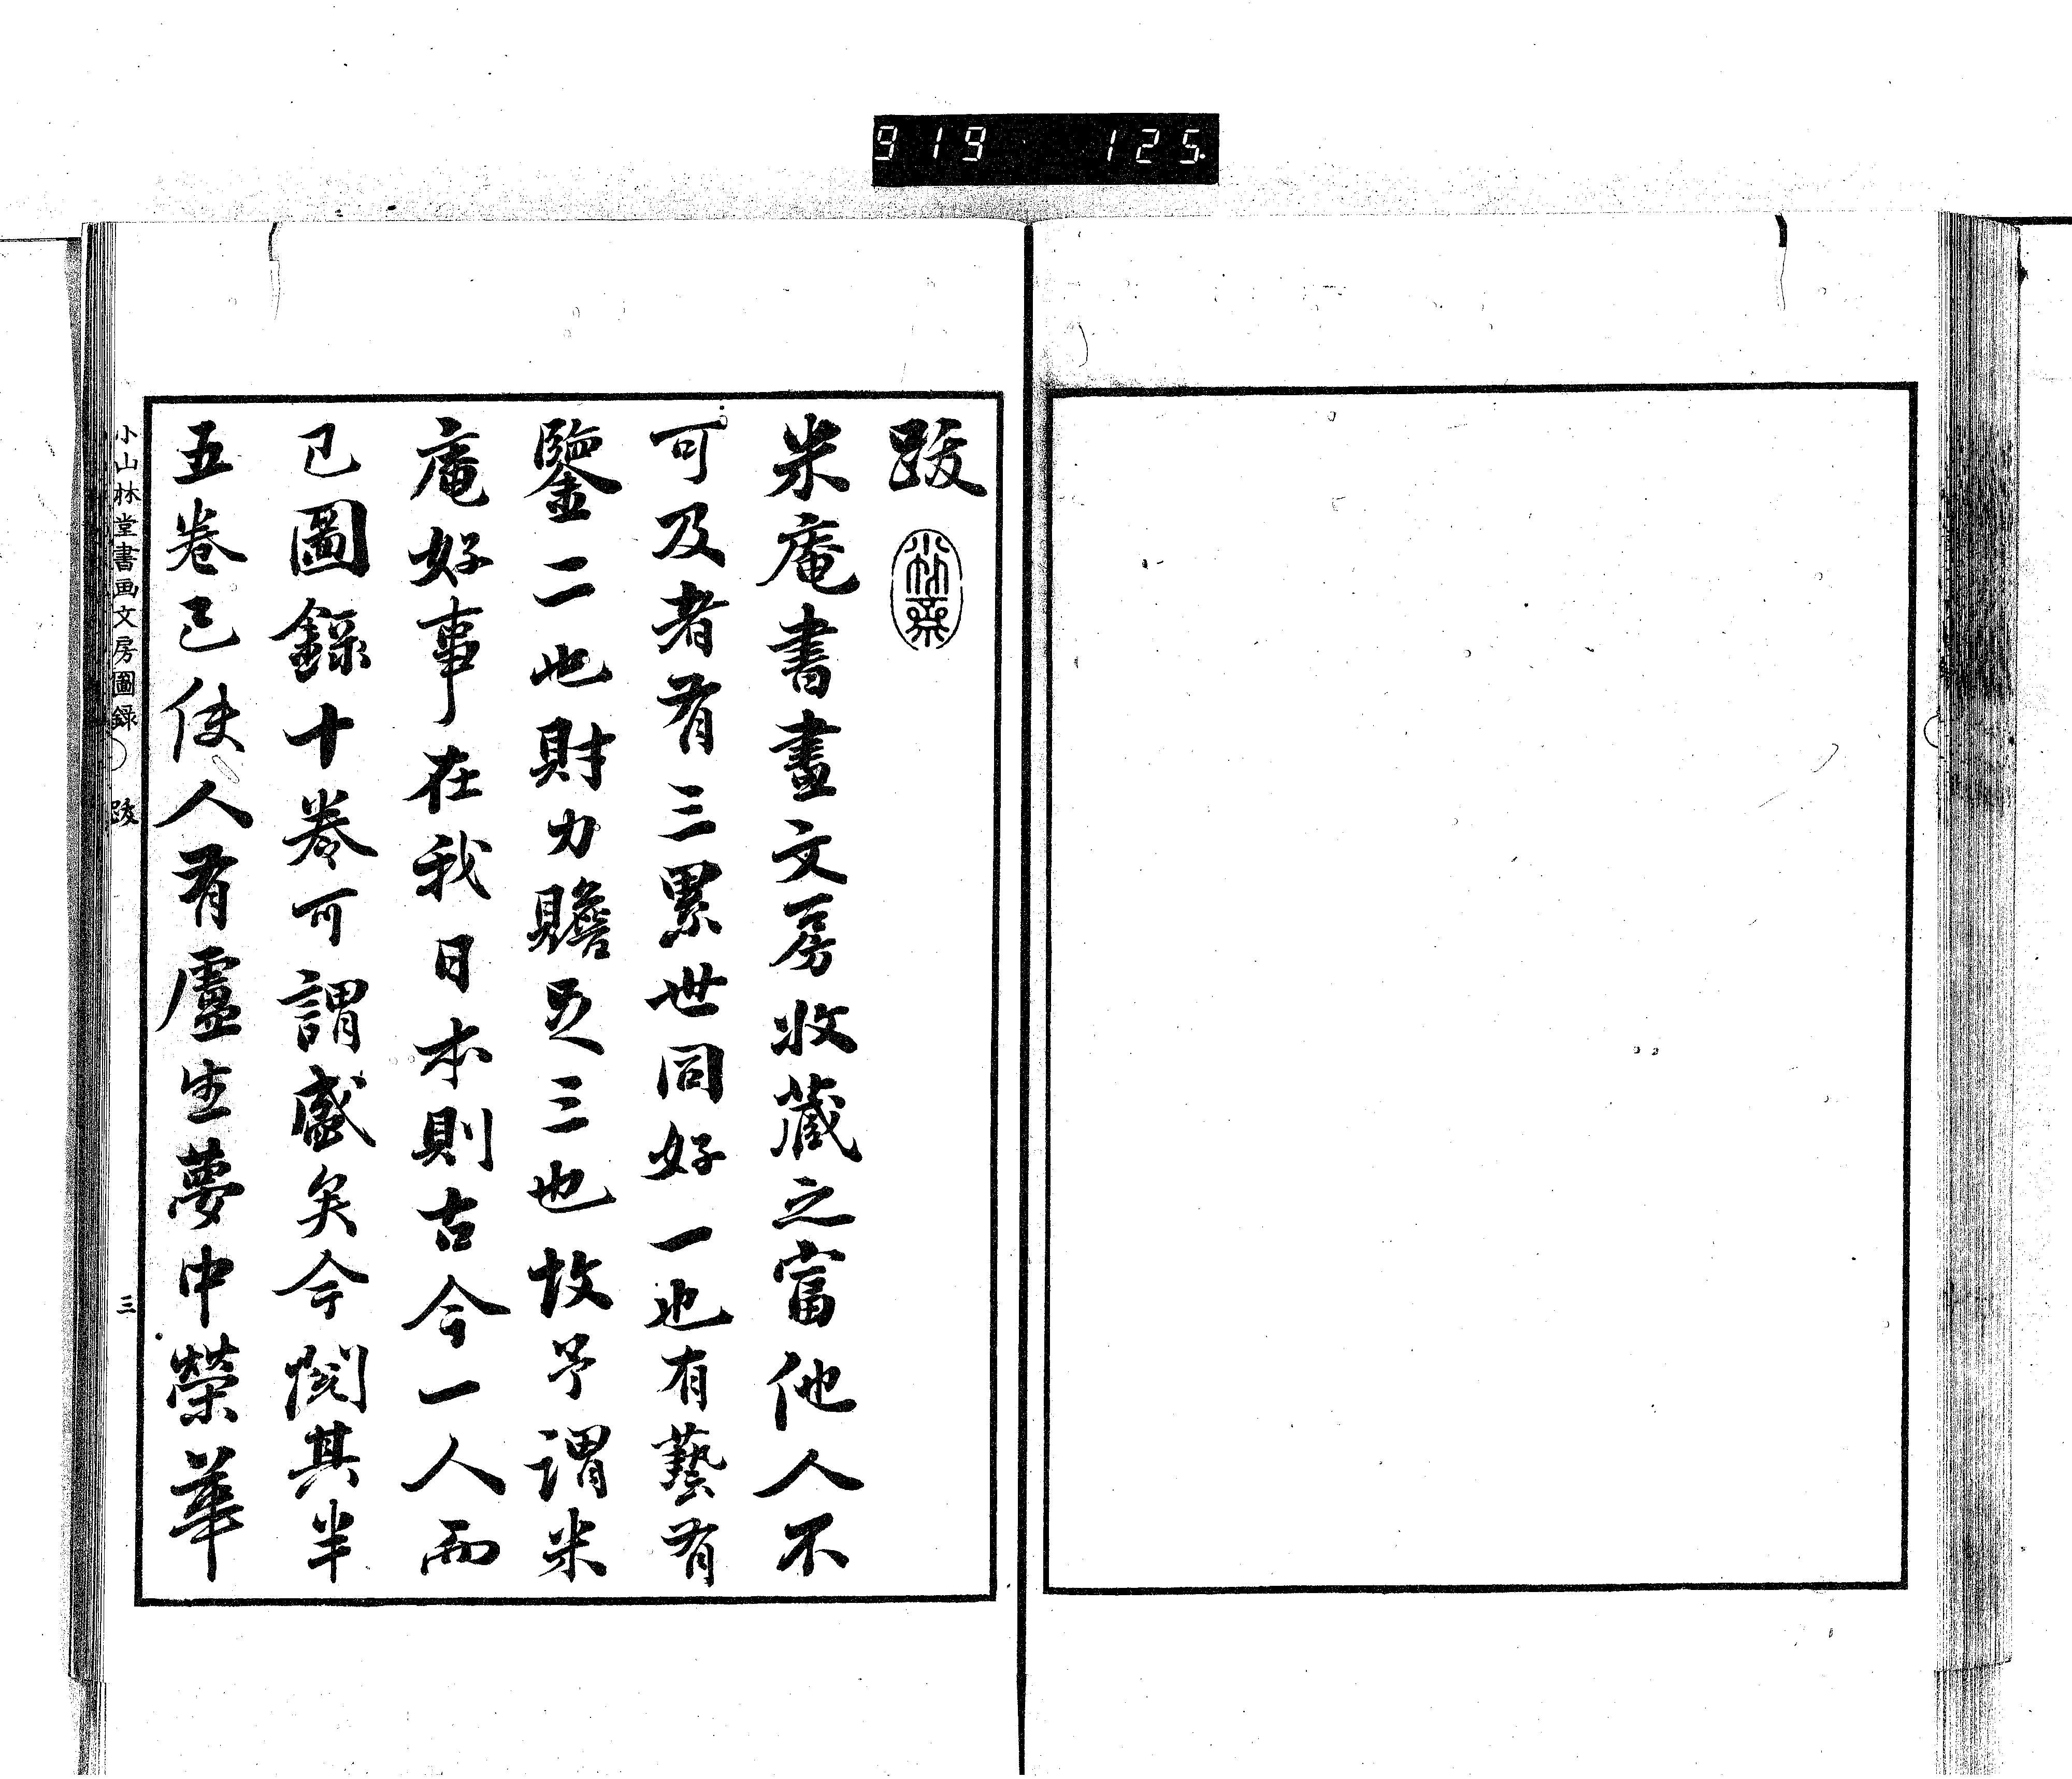 919 125
跋
小竹齋
米庵書畫文房收藏之富他人不
可及者有三累世同好一也有藝有
鑒二也財力贍足三也故予謂米
庵好事在我日本則古今一人而
已圖錄十卷可謂盛矣今閱其半
五卷已使人有盧生夢中榮華
小山林堂書画文房圖録 跋 三